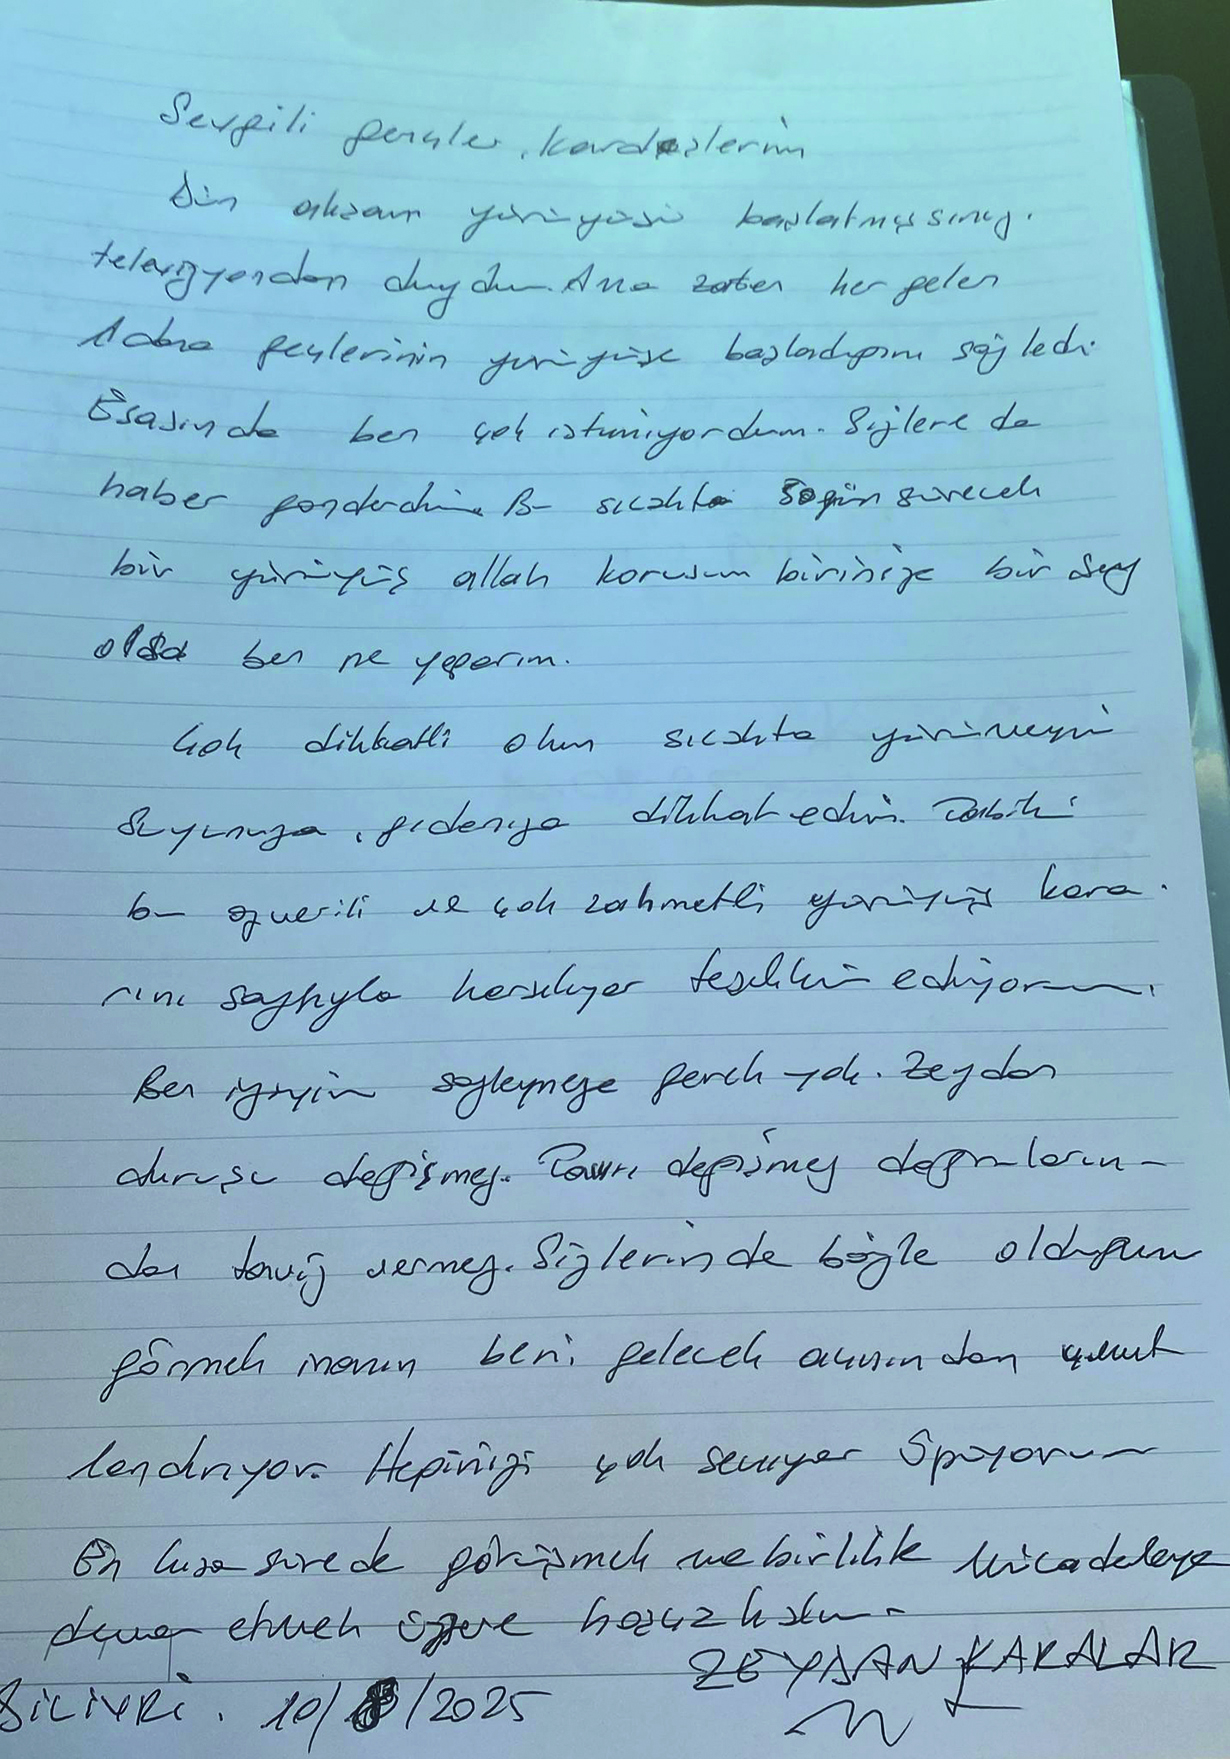 Sevgili gençler, kardeşlerim
Dün akşam yürüyüşü başlatmışsınız.
televizyondan duydum. Ama zaten her gelen
Adana gençlerinin yürüyüşe başladığını söyledi.
Esasında ben çok istemiyordum. Sizlere de
haber gönderdim. Bu sıcakta günsürecek
bir yürüyüş allah korusun birinize bir şey
olsa ben ne yaparım.
Çok dikkatli olun sıcakta yürümeyin
Suyunuza, gıdanıza dikkat edin. Tabiki
bu özverili ve çok zahmetli yürüyüş kara
rını saygıyla karşılıyor teşekkür ediyorum.
Ben iyiyim söylemeye gerek yok. Zeydan
duruşu değişmez. Tavrı değişmez doğruların-
dan taviz vermez. Sizlerinde böyle olduğunu
görmek inanın beni gelecek açısından umut
lendiriyor. Hepinizi çok seviyor öpüyorum
En kısa sürede görüşmek ve birlikte mücadeleye
devam etmek üzere hoşçakalın.
ZEYDAN KARALAR
SİLİVRİ. 10/8/2025